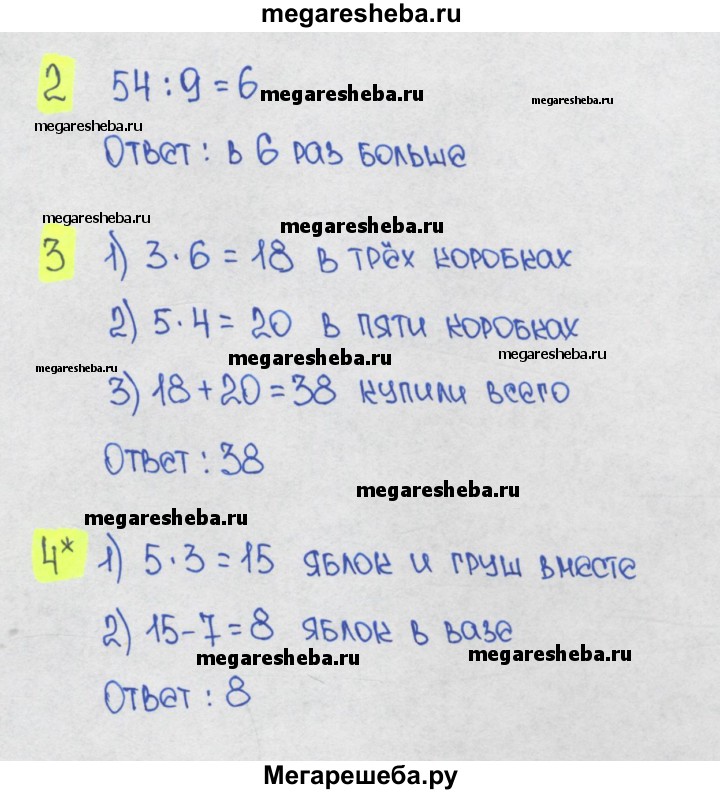 megaresheba.ru
2 54 : 9 = 6 megaresheba.ru megaresheba.ru
megaresheba.ru
Ответ : в 6 раз больше
megaresheba.ru megaresheba.ru
3 1) 3 · 6 = 18 в трёх коробках
2) 5 · 4 = 20 в пяти коробках
megaresheba.ru megaresheba.ru megaresheba.ru
3) 18 + 20 = 38 купили всего
Ответ : 38
megaresheba.ru
megaresheba.ru
4* 1) 5 · 3 = 15 яблок и груш вместе
2) 15 - 7 = 8 яблок в вазе
megaresheba.ru megaresheba.ru
Ответ : 8
Мегарешеба.ру